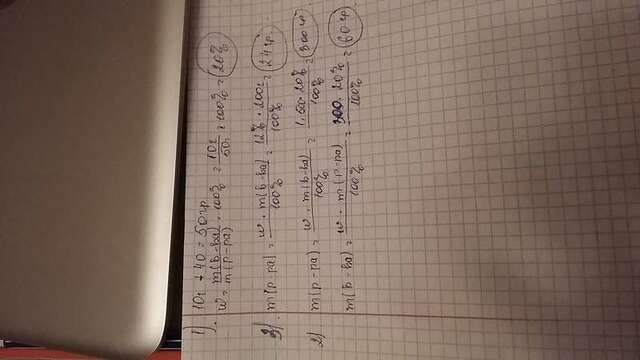 1). 10г + 40 = 50гр
w = m(в-ва) / m(р-ра) · 100% = 10г / 50г · 100% = 20%
3). m(р-ра) = w · m(в-ва) / 100% = 12% · 200г / 100% = 24гр.
2) m(р-ра) = w · m(в-ва) / 100% = 1.500 · 20% / 100% = 300гр
m(в-ва) = w · m(р-ра) / 100% = 300 · 20% / 100% = 60гр